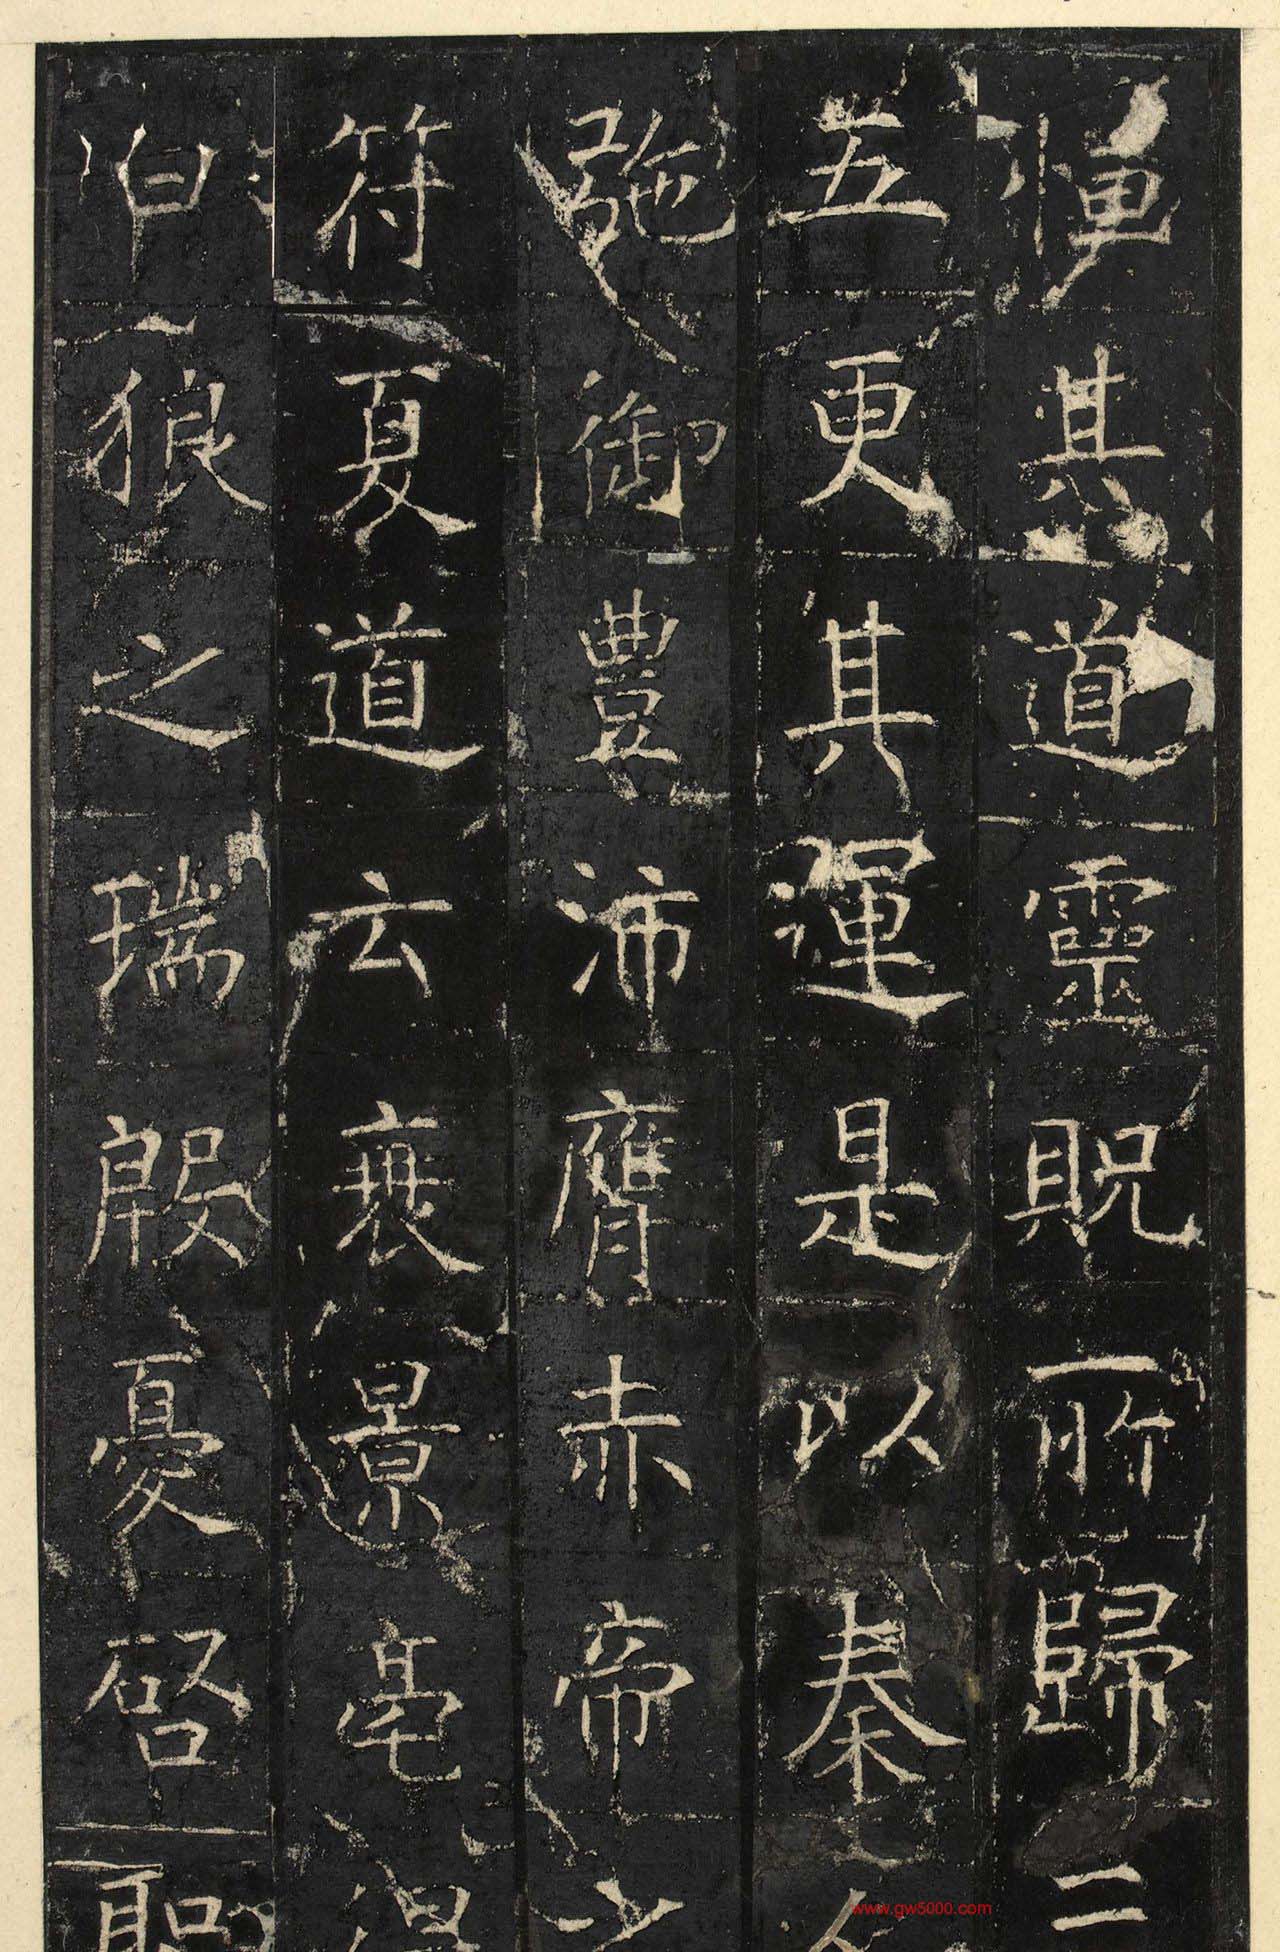 其道靈貺所歸二
五更其運是以秦
弛御豊沛膺赤帝之
符夏道云衰景亳得
白狼之瑞殷憂啓聖
www.gw5000.com